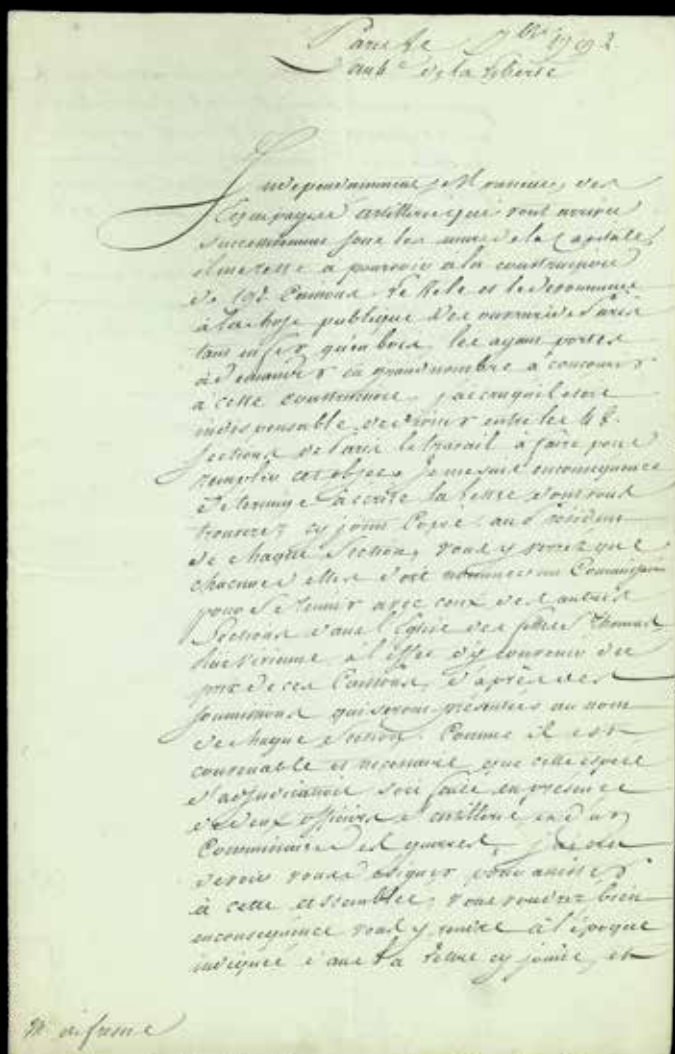 Paris le 7bre 1792
l'an 4e de la Liberté
Independamment, Monsieur, des
Equipages d'artillerie qui vont arriver
successivement sous les murs de la Capitale,
il me reste a pourvoir a la construction
de 192 Caissons. Le Zele et le devouement
à la chose publique des ouvriers de Paris
tant en fer qu'en bois, les ayant portés
à demander en grand nombre à concourir
à cette construction, j'ai cru qu'il etoit
indispensable de diviser entre les 48.
Sections de Paris le travail à faire pour
remplir cet objet. Je me suis en consequence
determiné à ecrire la lettre dont vous
trouverez cy joint Copie, au Président
de chaque Section, vous y verrez que
chacune d'elles doit nommer un Commissaire
pour se réunir avec ceux des autres
Sections dans l'Eglise des filles St Thomas,
Rue Vivienne, à l'effet d'y convenir du
prix de ces Caissons, d'après les
soumissions qui seront présentées au nom
de chaque Section. Comme il est
convenable et necessaire que cette espece
d'adjudication soit faite en presence
de deux officiers d'artillerie et d'un
Commissaire des guerres, j'ai cru
devoir vous designer pour assister
à cette assemblée; vous voudrez bien
en consequence vous y rendre à l'époque
indiquée dans la lettre cy jointe, et
M. dufresne